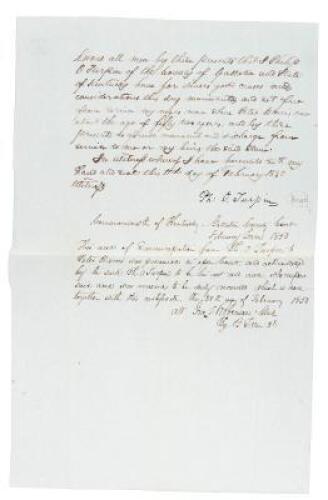 Know all men by these presents that I Philip
O Turpin of the county of Gallatin and State
of Kentucky have for divers good causes and
considerations this day manumitted and set free
from service my negro man slave Peter
about the age of fifty two years and by these
presents do release manumit and discharge from
service to me or my heirs the said
In witness whereof I have hereunto set my
hand and seal this 11th day of February 185
Witness
Ph. O. Turpin
Seal
Commonwealth of Kentucky Gallatin County Court
February Term 1853
This deed of Emancipation from Ph. O Turpin to
Peter was produced in open court, and acknowledged
by the said Ph O Turpin to be his act and deed
and was ordered to be duly recorded which is done
together with this certificate the day of February 1853
att Clerk
By